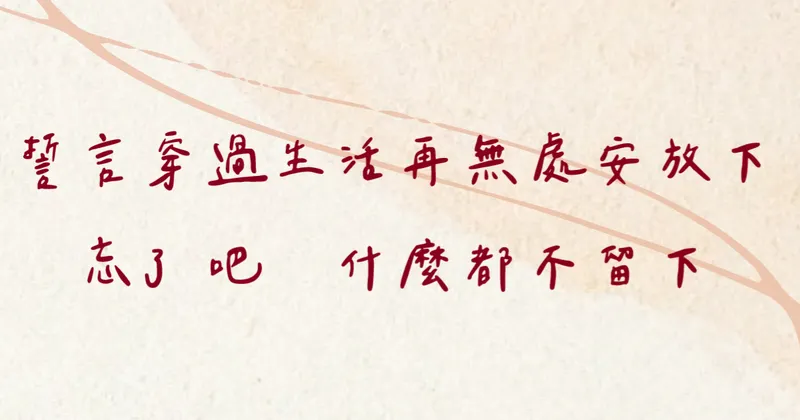 誓言穿過生活再無處安放下
忘了吧　什麼都不留下